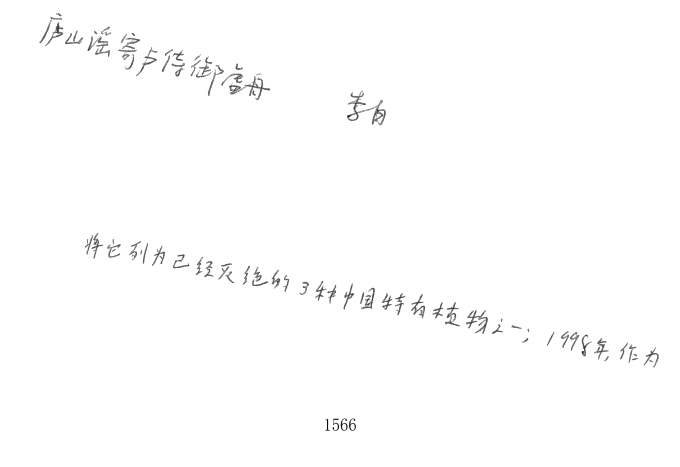 庐山谣寄卢侍御虚舟 李白
将它列为已经灭绝的3种中国特有植物之一；1998年，作为
1566